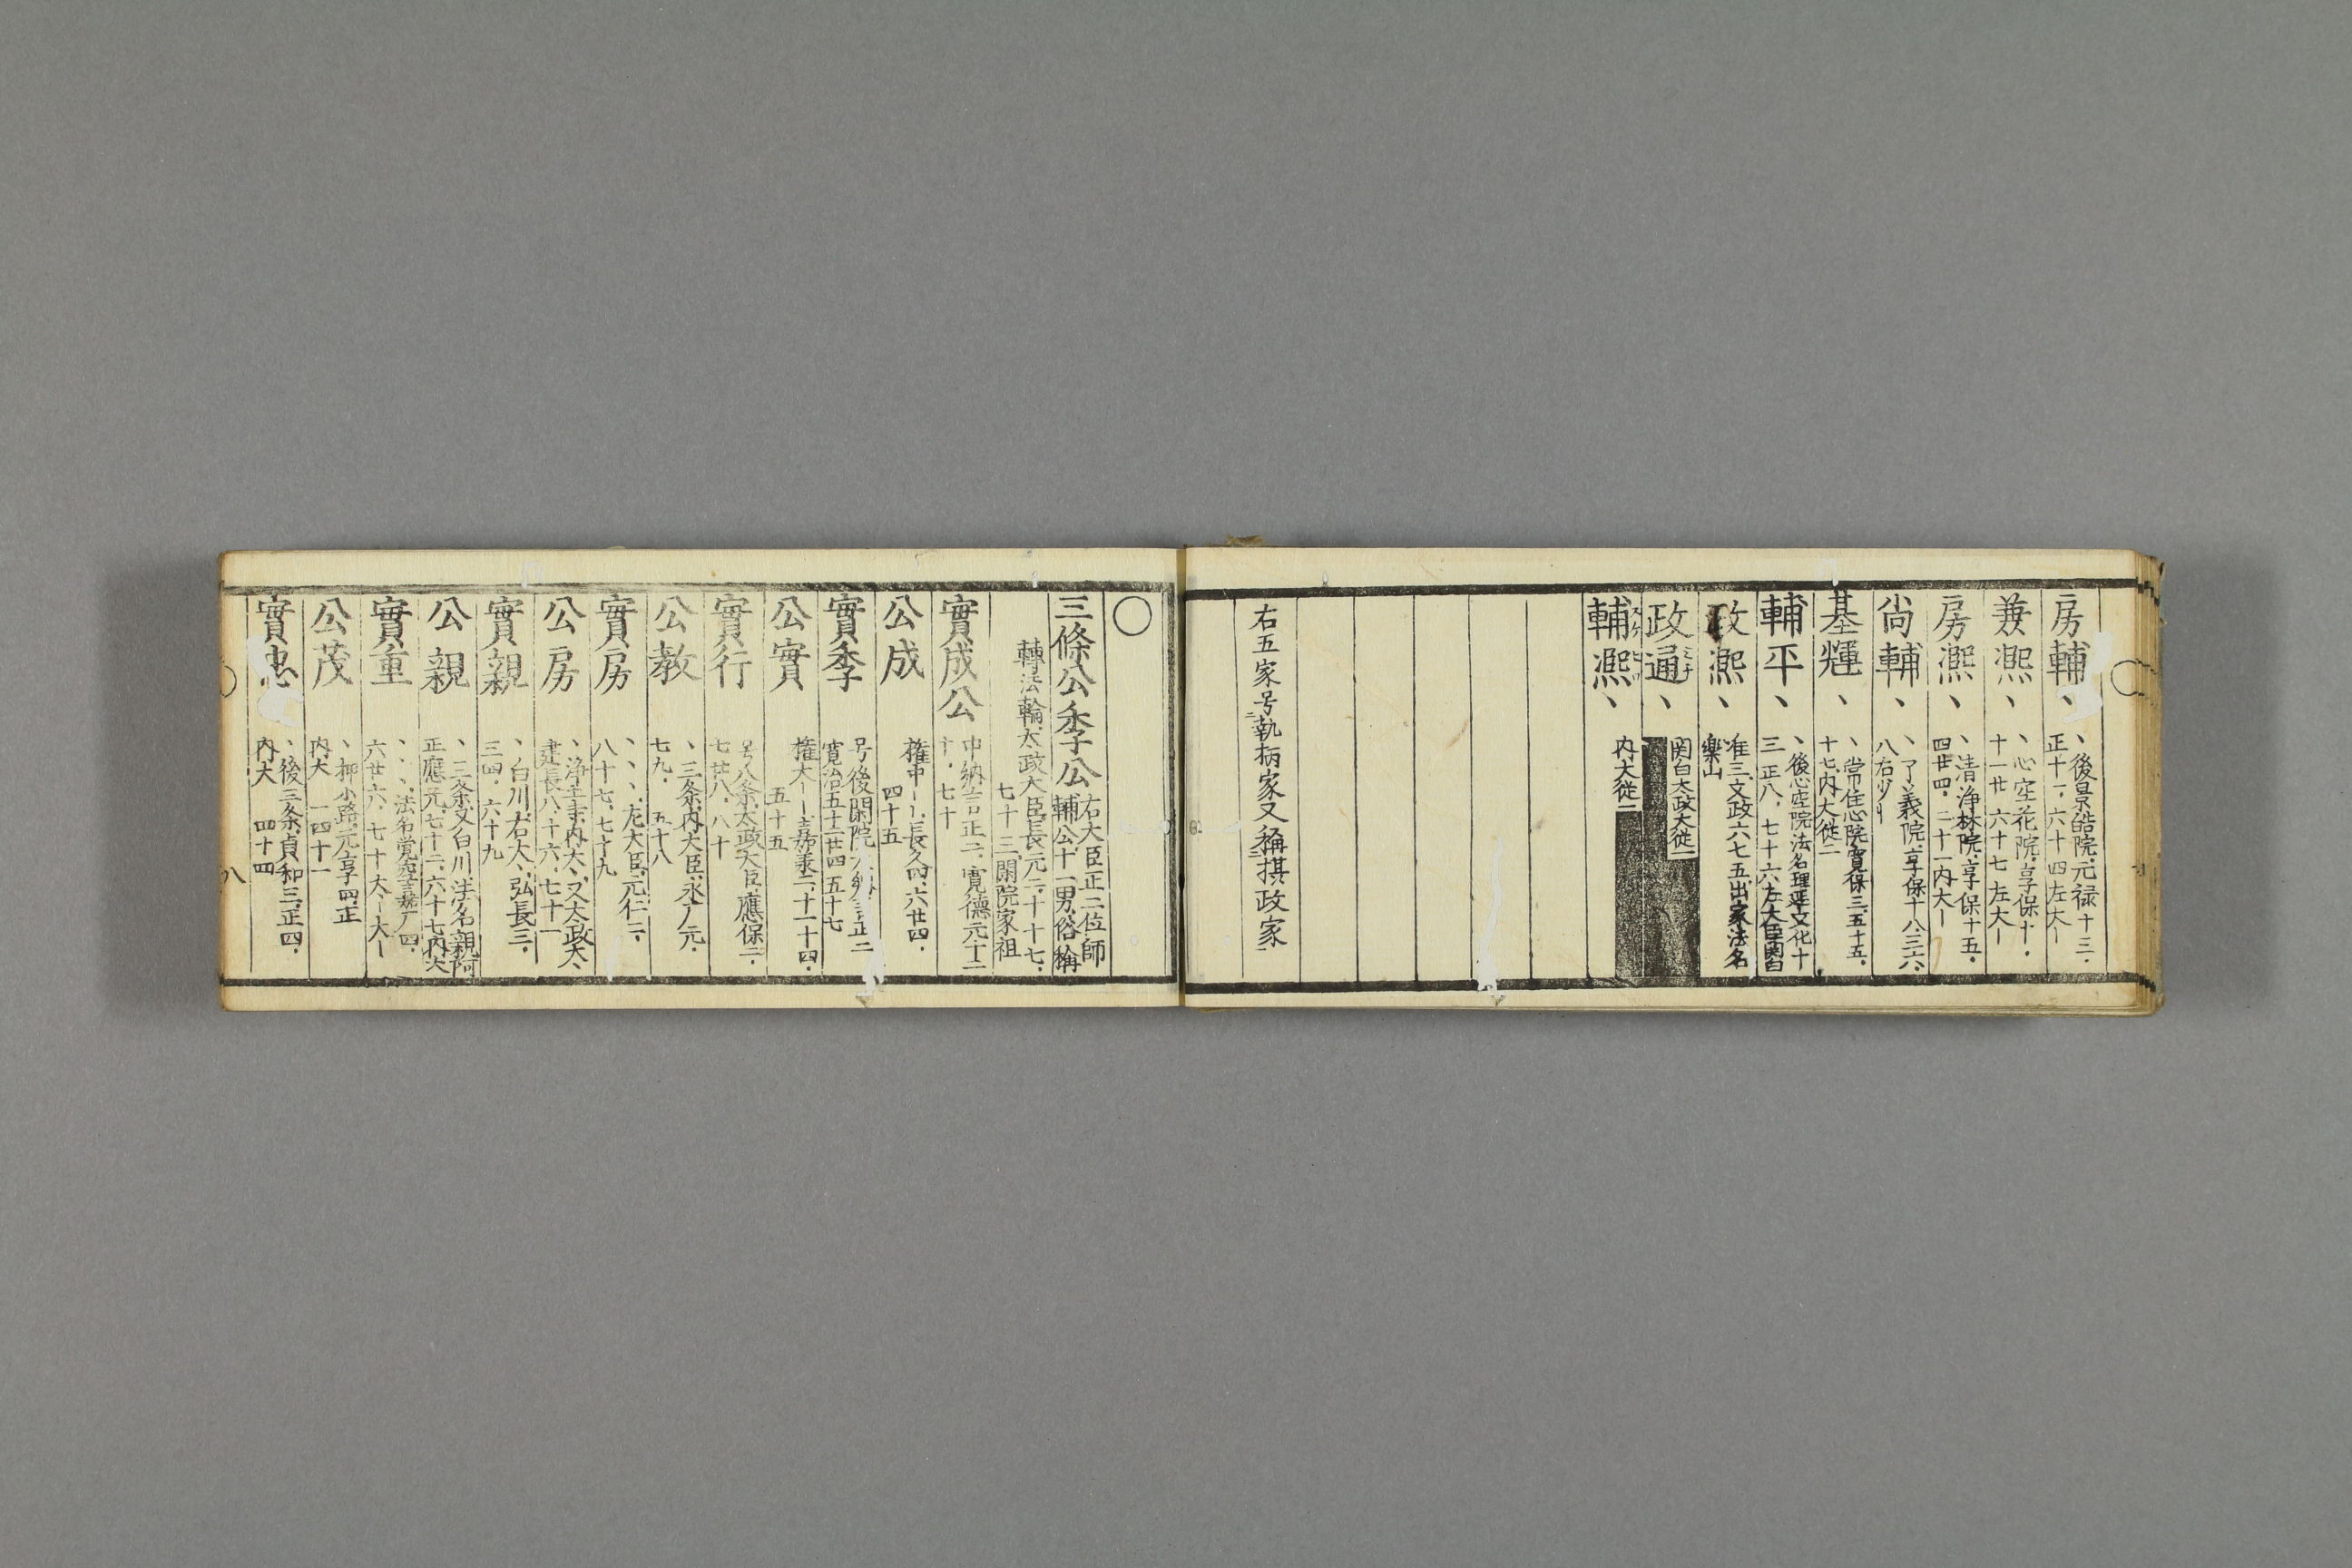 房輔、
、後景皓院、元禄十三・
正十一、六十四左大一
兼凞、
、心空花院、享保十・
十一廿 六十七左大一
房凞、
、清浄林院、享保十五・
四廿四、二十一内大一
尚輔、
、了義院、享保十八三六、
八右少
基輝、
、常住心院寛保三、五十五、
十七、内大従一
輔平、
、後心空院法名理延文化十
三正八、七十六左大臣関白
政凞、
准三、文政六七五出家法名
楽山
政通、
関白太政大従一
輔凞、
内大従一
右五家号執柄家又稱摂政家
三條公季公
右大臣正二位師
輔公十一男、俗稱
轉法輪、太政大臣、長元二、十十七、
七十三、閑院家祖
實成公
中納言正二、寛德元十二
十、七十
公成
権中一、長久四、六廿四、
四十五
實季
号後閑院
寛治五十二廿四五十七
公實
権大一、嘉承二、十一十四、
五十五
實行
号八条太政大臣、應保二、
七廿八、八十
公教
、三条内大臣、永厂元、
七九、五十八
實房
、、、左大臣、元仁二、
八十七、七十九
公房
、浄土寺、内大、又太政大、
建長八、十六、七十一
實親
、白川、右大、弘長三、
三四、六十九
公親
、三条又白川、法名親阿
正應元、七十二、六十七内大
實重
、、、法名覚空、嘉厂四、
六廿六、七十大一大一
公茂
、押小路、元享四、正
内大 一四十一
實忠
、後三条貞和三、正四、
内大 四十四
八